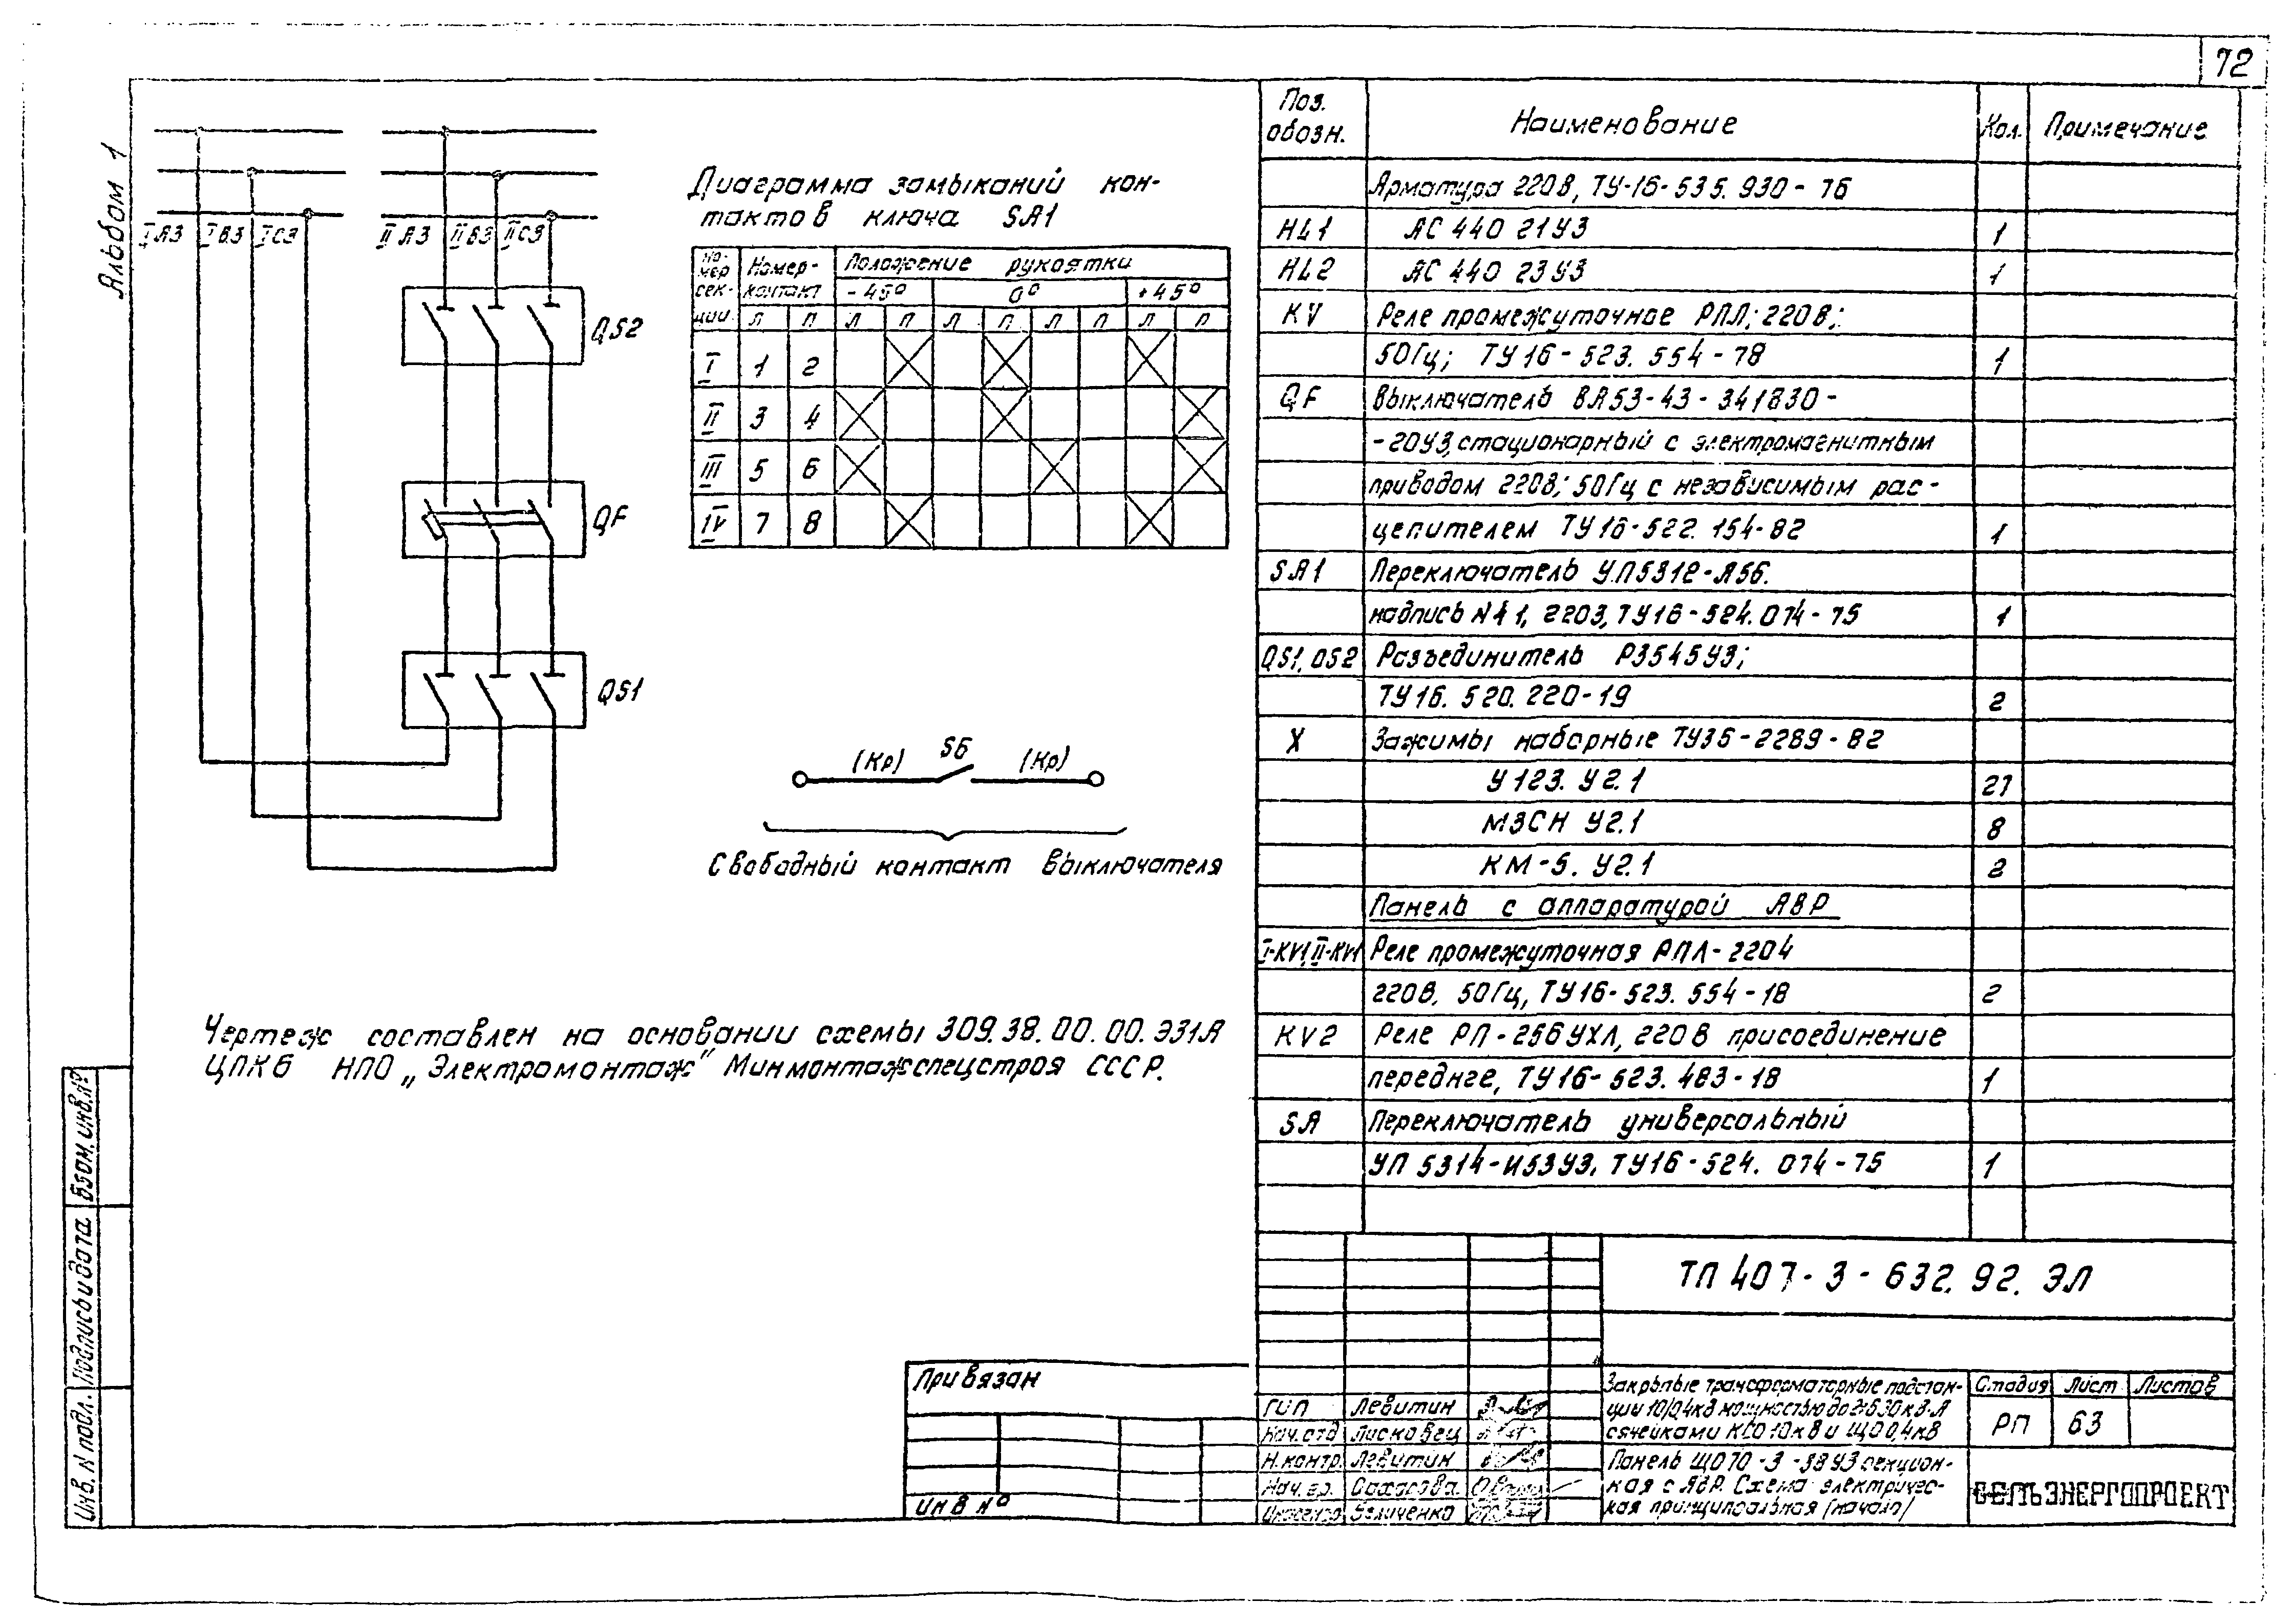 72
Альбом 1
IА3 IВ3 IС3 IIА3 IIВ3 IIС3
QS2
QF
QS1
Диаграмма замыканий кон-
тактов ключа SA1
Но-
мер
сек-
ции
Номер
контакт
Положение рукоятки
-45° 0° +45°
Л П Л П Л П Л П Л П
I 1 2
II 3 4
III 5 6
IV 7 8
(Кр) S6 (Кр)
Свободный контакт выключателя
Чертеж составлен на основании схемы 309.38.00.00.Э31А
ЦПКБ НПО „Электромонтаж" Минмонтажспецстроя СССР.
Поз. обозн. Наименование Кол. Примечание
Арматура 220В, ТУ-16-535.930-76
HL1 АС 440 21У3 1
HL2 АС 440 23У3 1
KV Реле промежуточное РПЛ; 220В;
50Гц; ТУ16-523.554-78 1
QF Выключатель ВА53-43-341830-
-20У3, стационарный с электромагнитным
приводом 220В; 50Гц с независимым рас-
цепителем ТУ16-522.154-82 1
SA1 Переключатель УП5312-А56.
надпись №41, 2203, ТУ16-524.074-75 1
QS1, QS2 Разъединитель Р3545У3;
ТУ16.520.220-19 2
X Зажимы наборные ТУ36-2289-82
У123.У2.1 21
МЗСН У2.1 8
КМ-5.У2.1 2
Панель с аппаратурой АВР
I-KV1, II-KV1 Реле промежуточная РПЛ-2204
220В, 50Гц, ТУ16-523.554-18 2
KV2 Реле РП-256УХЛ, 220В присоединение
переднее, ТУ16-523.483-18 1
SA Переключатель универсальный
УП 5314-И53У3, ТУ16-524.074-75 1
ТП 407-3-632.92.ЭЛ
Закрытые трансформаторные подстан-
ции 10/0,4кВ мощностью до 2х630кВ·А
с ячейками КСО 10кВ и ЩО 0,4кВ
Стадия Лист Листов
РП 63
Панель ЩО70-3-38У3 секцион-
ная с АВР. Схема электричес-
кая принципиальная (начало)
СЕЛЬЭНЕРГОПРОЕКТ
ГИП Левитин
Нач.отд Лисковец
Н.контр. Левитин
Нач.гр. Сахарова
Инженер Величенко
Привязан
Инв №
Взам.инв.№
Подпись и дата
Инв. N подл.